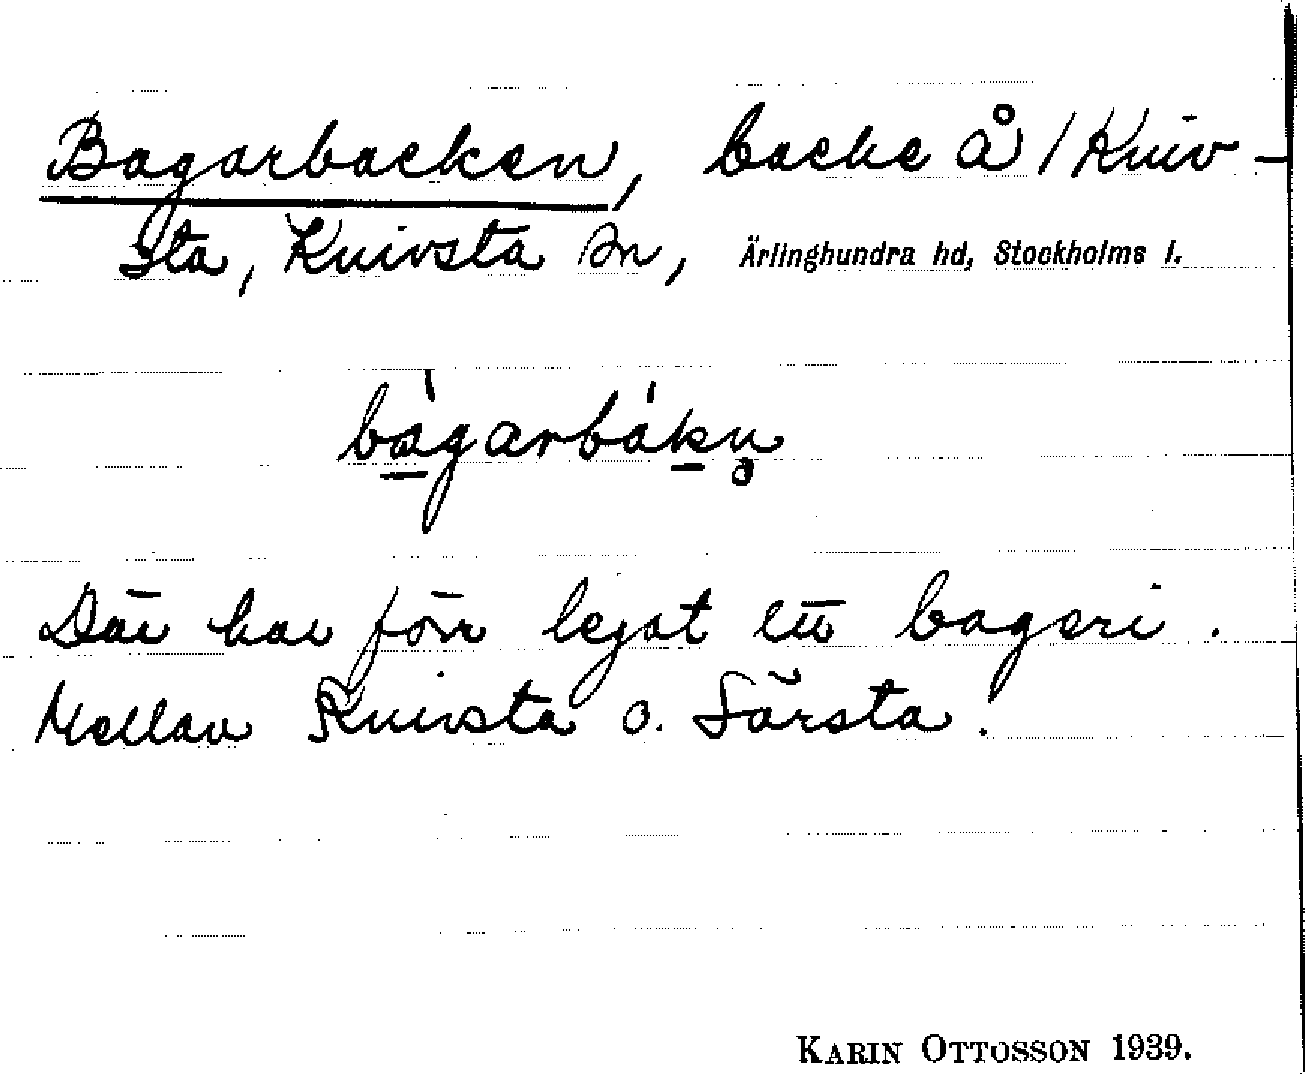 Bagarbacken, backe å / Kniv-
sta, Knivsta sn, Ärlinghundra hd, Stockholms l.
bàgarbák̠n̥
Där har förr legat ett bageri.
Mellan Knivsta o. Särsta.
KARIN OTTOSSON 1939.